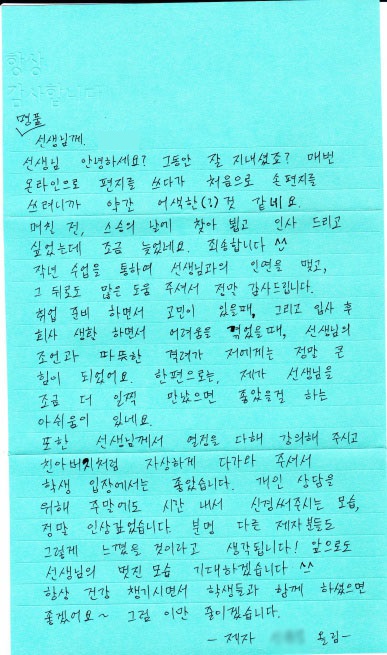 항상
감사합니다
명품
선생님께.
선생님 안녕하세요? 그동안 잘 지내셨죠? 매번
온라인으로 편지를 쓰다가 처음으로 손편지를
쓰려니까 약간 어색한(?)것 같네요.
며칠 전, 스승의 날에 찾아 뵙고 인사 드리고
싶었는데 조금 늦었네요. 죄송합니다 ^^
작년 수업을 통하여 선생님과의 인연을 맺고,
그 뒤로도 많은 도움 주셔서 정말 감사드립니다.
취업 준비 하면서 고민이 있을때, 그리고 입사 후
회사 생활 하면서 어려움을 겪었을때, 선생님의
조언과 따뜻한 격려가 저에게는 정말 큰
힘이 되었어요. 한편으로는, 제가 선생님을
조금 더 일찍 만났으면 좋았을걸 하는
아쉬움이 있네요.
또한 선생님께서 열정을 다해 강의해 주시고
친아버지처럼 자상하게 다가와 주셔서
학생 입장에서는 좋았습니다. 개인 상담을
위해 주말에도 시간 내서 신경써주시는 모습,
정말 인상깊었습니다. 분명 다른 제자분들도
그렇게 느꼈을 것이라고 생각됩니다! 앞으로도
선생님의 멋진 모습 기대하겠습니다 ^^
항상 건강 챙기시면서 학생들과 함께 하셨으면
좋겠어요~ 그럼 이만 줄이겠습니다.
- 제자 올림-